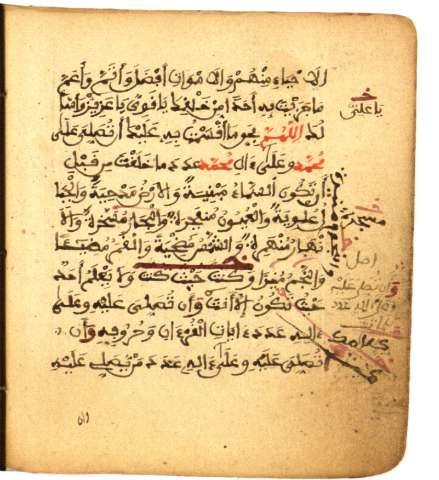 الاحياء منهم والاموات افضل واتم واعم
ما جزيت به احدا من خلقك يا قوي يا عزيز واسا
يا علي
لك اللهم بحق ما اقسمت به عليك ان تصلي على
محمد وعلى ءال محمد عدد ما خلقت من قبل
ان تكون السماء مبنية والارض مدحية والجبا
ل علوية والعيون منفجرة والبحار مسخرة والا
نهار منهمرة والشمس مضحية والقمر مضيئا
والنجم منيرا وكنت حيث كنت ولا يعلم احد
حيث تكون الا انت وان تصلي عليه وعلى
ءاله عدد ءايات القرءان وحروفه وان
تصلي عليه وعلى ءاله عدد من يصلي عليه